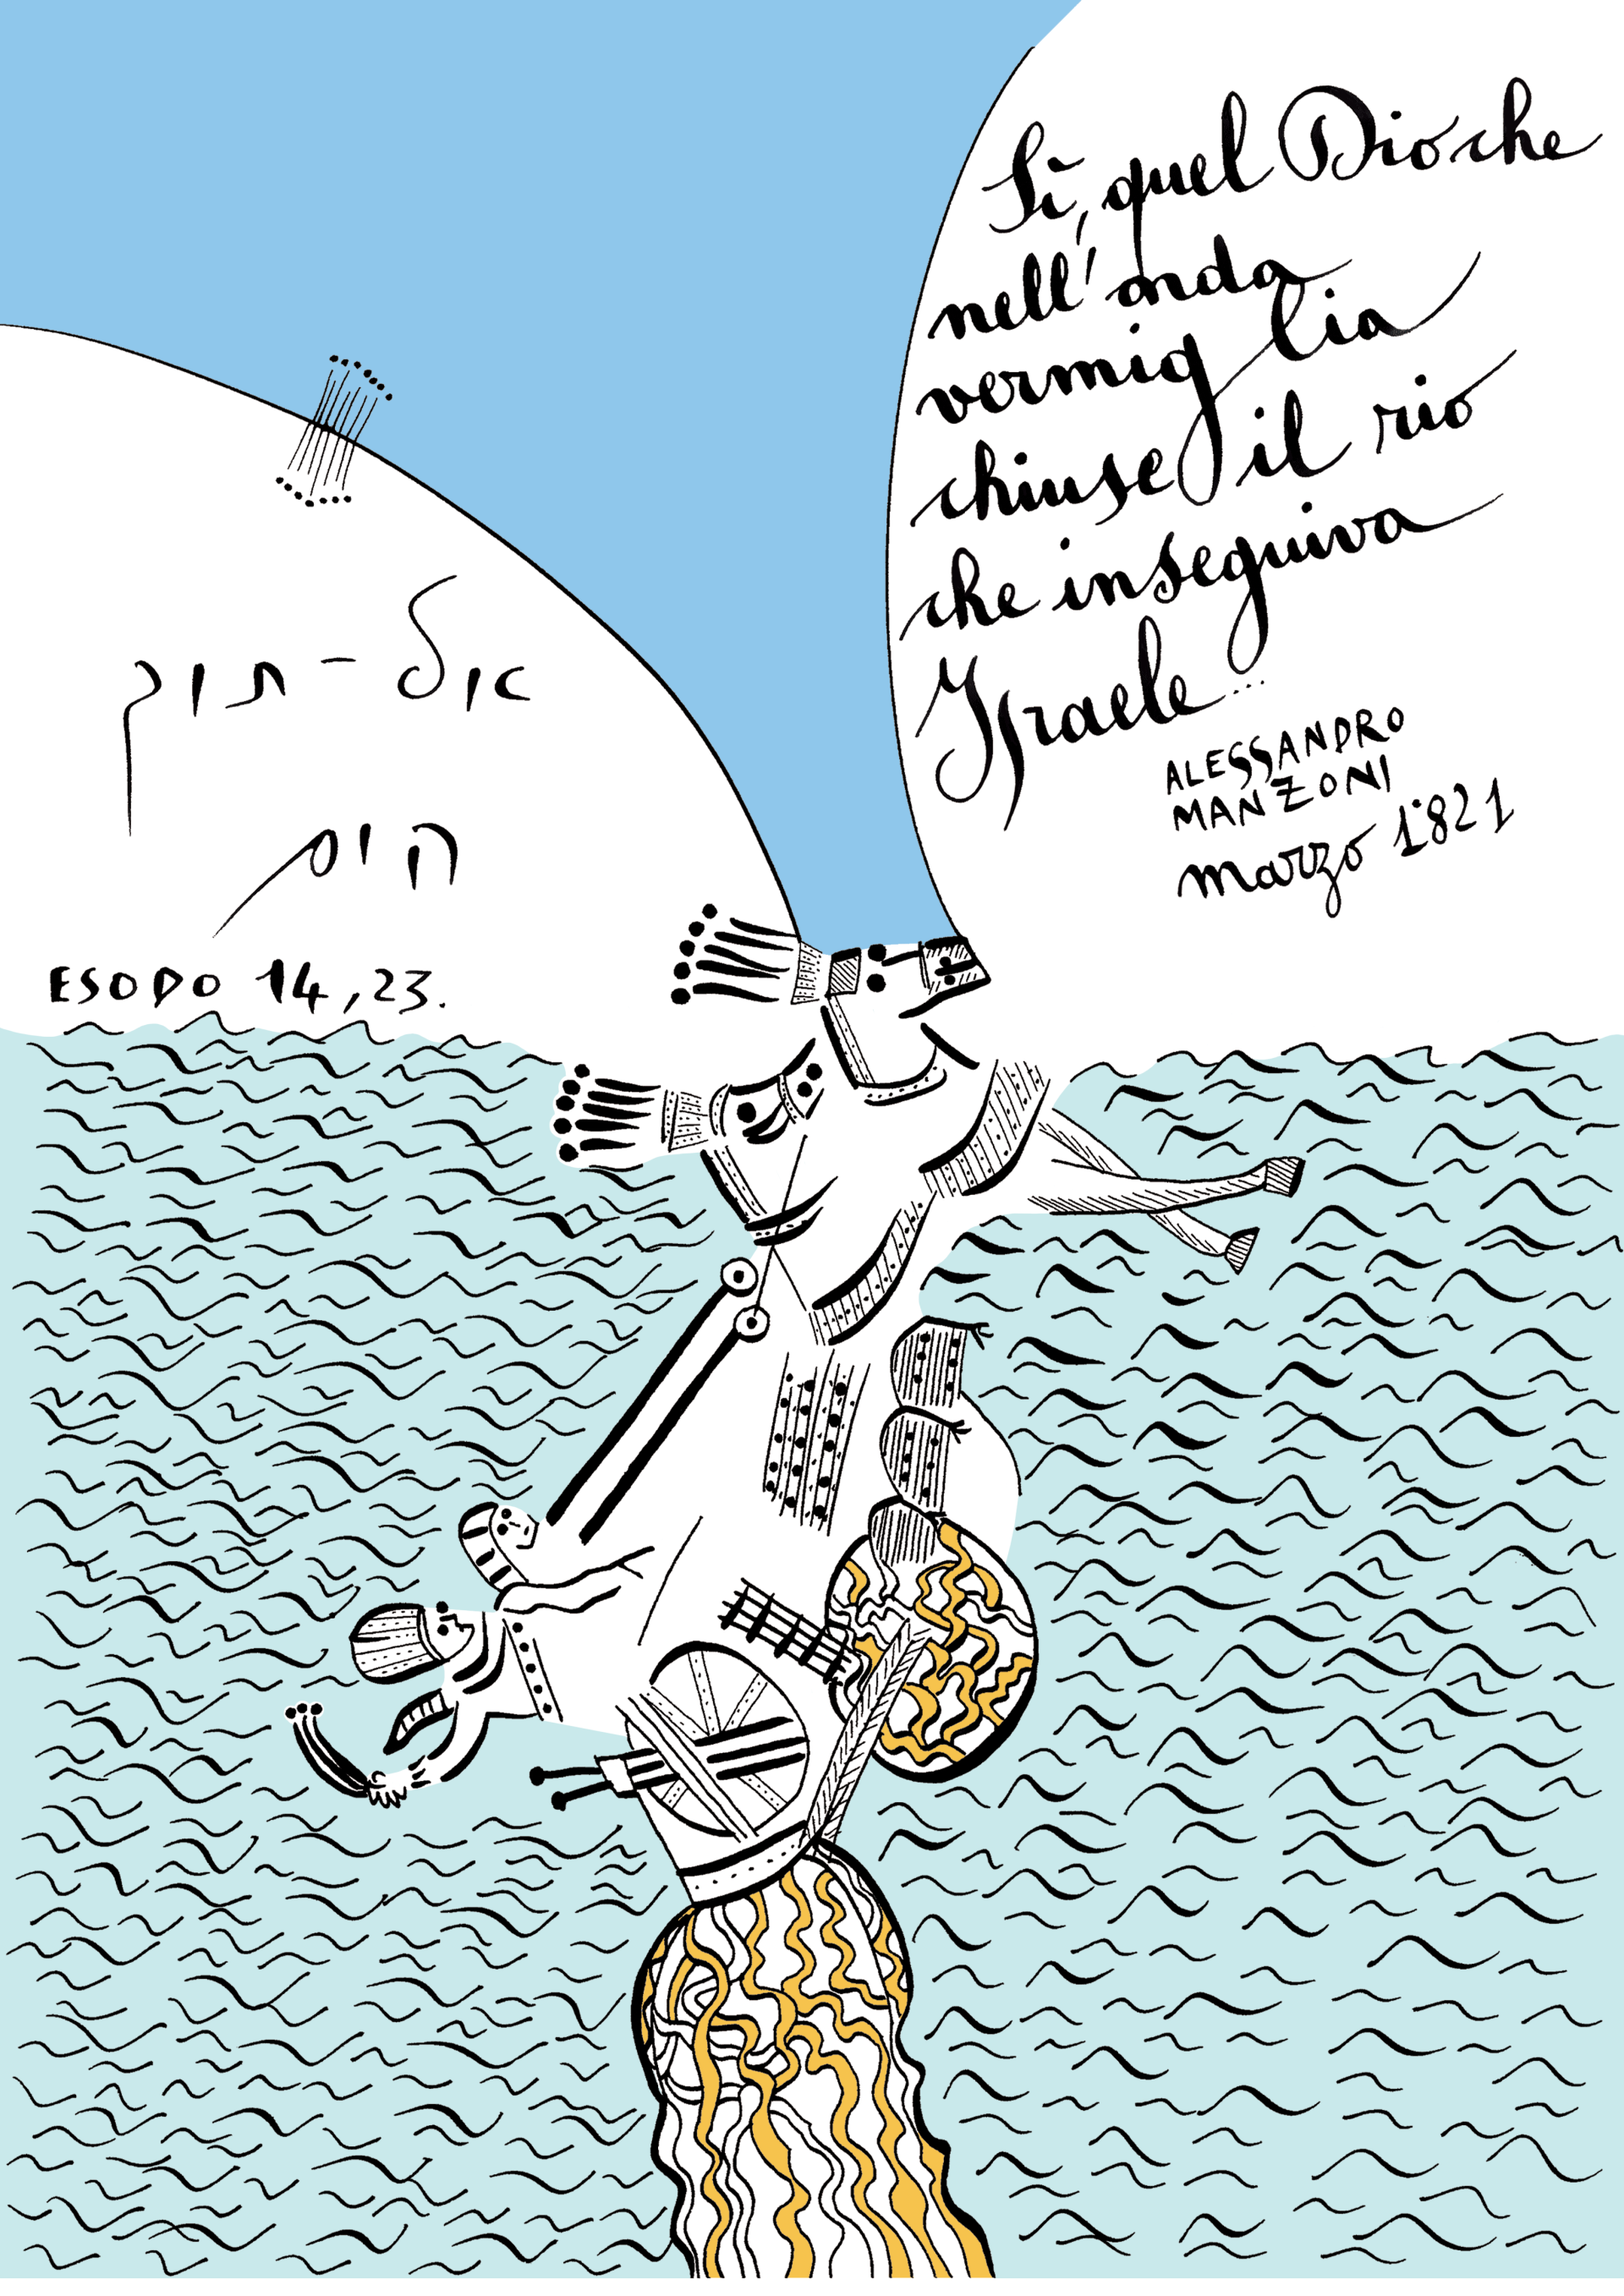 Sì, quel Dio che
nell'onda
vermiglia
chiuse il rio
che inseguiva
Israele...
ALESSANDRO
MANZONI
marzo 1821
אל-תוך
הים
ESODO 14,23.